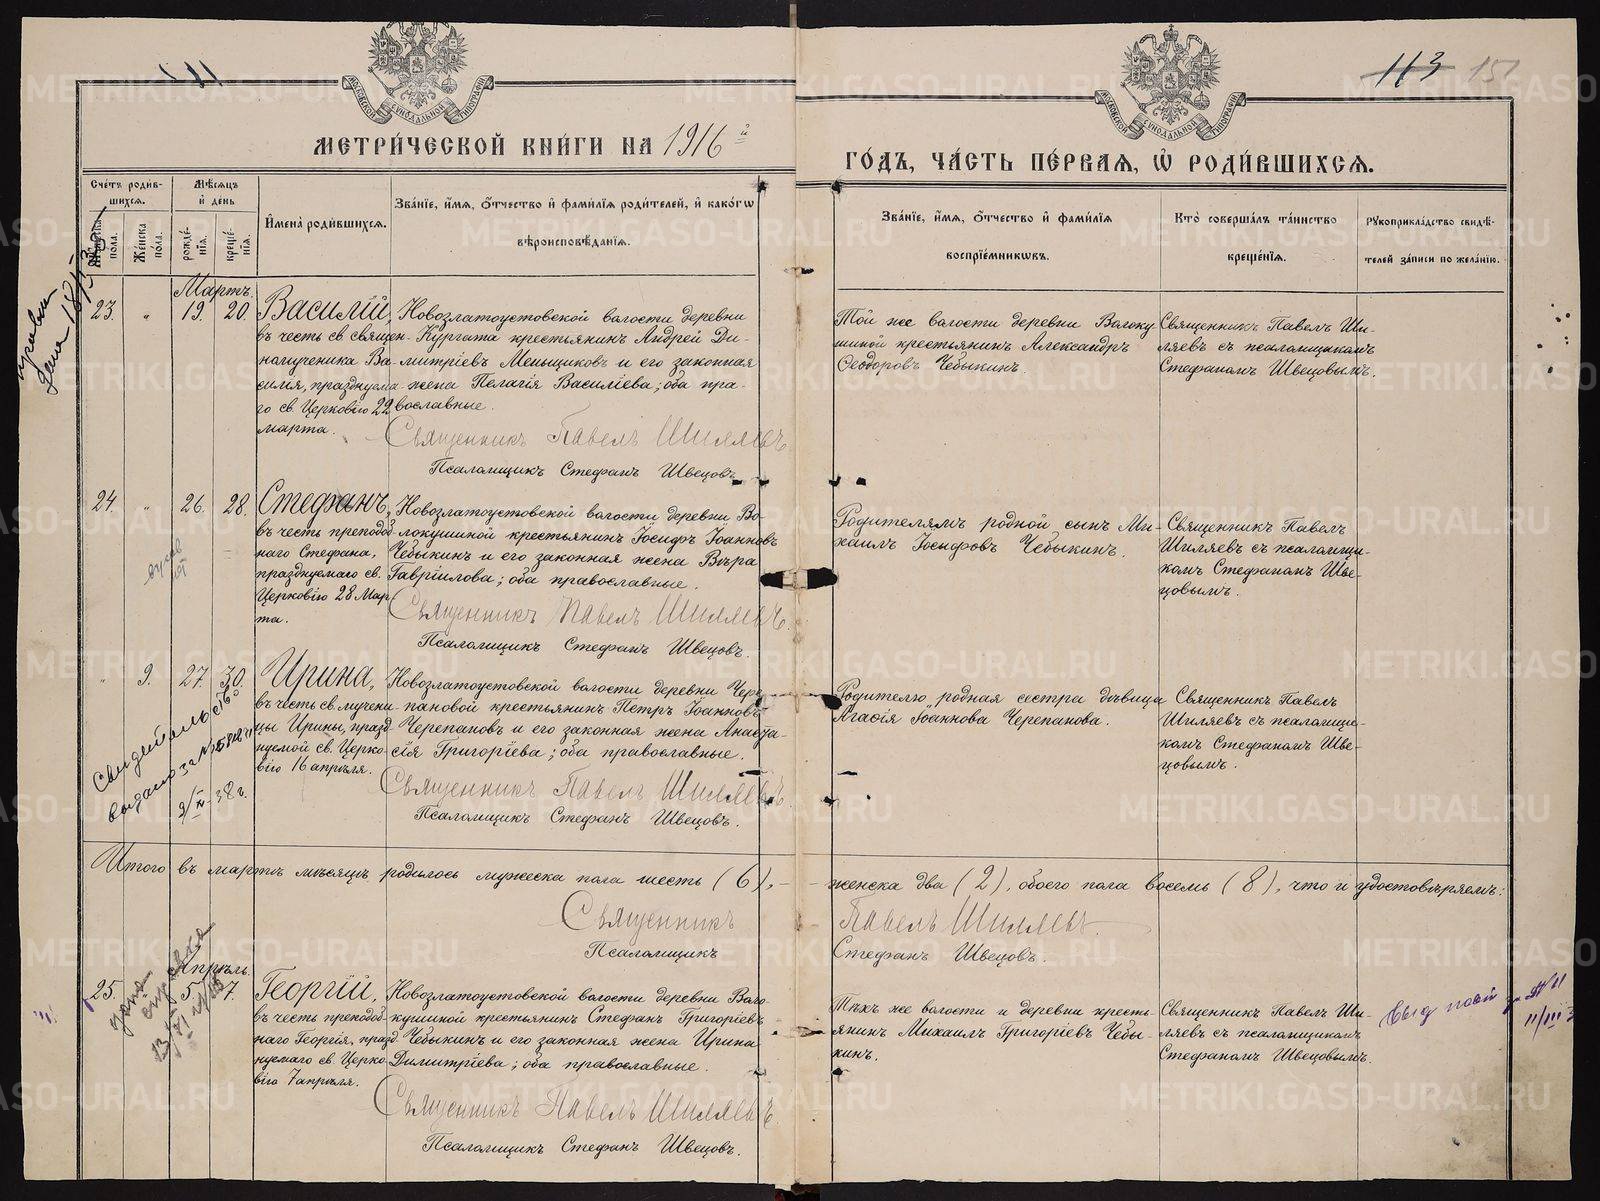 113 151
МОСКОВСКОЙ СѴНОДАЛЬНОЙ ТИПОГРАФІИ
МОСКОВСКОЙ СѴНОДАЛЬНОЙ ТИПОГРАФІИ
МЕТРИ́ЧЕСКОЙ КНИ́ГИ НА 1916 й
ГО́ДЪ, ЧА́СТЬ ПЕ́РВАѦ, Ѡ҆ РОДИ́ВШИХСѦ.
Сче́тъ роди́в-
шихсѧ.
Мѣ́сѧцъ
и҆ де́нь
Же́нска пола.
рожде́-
нїѧ.
креще́-
нїѧ.
И҆мена̀ роди́вшихсѧ.
Зва́нїе, и҆́мѧ, ѻ҆́тчество и҆ фами́лїѧ роди́телей, и҆ како́гѡ
вѣроисповѣ́данїѧ.
Зва́нїе, и҆́мѧ, ѻ҆́тчество и҆ фами́лїѧ
воспрїе́мникѡвъ.
Кто̀ соверша́лъ та́инство
креще́нїѧ.
Рꙋкоприкла́дство свидѣ́-
телей за́писи по жела́нїю.
Мартъ.
23. " 19. 20. Василій,
въ честь св. священ-
номученика Ва-
силія, празднуема-
го св. Церковію 22
марта.
Новозлатоустовской волости деревни
Кургата крестьянинъ Андрей Ди-
митріевъ Меньщиковъ и его законная
жена Пелагія Василіева; оба пра-
вославные.
Священникъ Павелъ Шиляевъ
Псаломщикъ Стефанъ Швецовъ.
Той же волости деревни Волоку
шиной крестьянинъ Александръ
Ѳеодоровъ Чебыкинъ.
Священникъ Павелъ Ши-
ляевъ съ псаломщикомъ
Стефаномъ Швецовымъ.
24. " 26. 28. Стефанъ,
въ честь преподоб-
наго Стефана,
празднуемаго св.
Церковію 28 Мар-
та.
Новозлатоустовской волости деревни Во-
локушиной крестьянинъ Іосифъ Іоанновъ
Чебыкинъ и его законная жена Вѣра
Гавріилова; оба православные.
Священникъ Павелъ Шиляевъ.
Псаломщикъ Стефанъ Швецовъ.
Родителямъ родной сынъ Ми-
хаилъ Іосифовъ Чебыкинъ.
Священникъ Павелъ
Шиляевъ съ псаломщи-
комъ Стефаномъ Шве-
цовымъ.
" 9. 27. 30. Ирина,
въ честь св. мучени-
цы Ирины, празд-
нуемой св. Церко-
вію 16 апрѣля.
Новозлатоустовской волости деревни Чере-
пановой крестьянинъ Петръ Іоанновъ
Черепановъ и его законная жена Анаста-
сія Григоріева; оба православные.
Священникъ Павелъ Шиляевъ.
Псаломщикъ Стефанъ Швецовъ.
Родителю родная сестра дѣвица
Агаѳія Іоаннова Черепанова.
Священникъ Павелъ
Шиляевъ съ псаломщи-
комъ Стефаномъ Шве-
цовымъ.
Свидетельство
выдано за №
Итого въ мартѣ мѣсяцѣ родилось мужеска пола шесть (6), -
- женска два (2), обоего пола восемь (8), что и удостовѣряемъ:
Священникъ Павелъ Шиляевъ.
Псаломщикъ Стефанъ Швецовъ.
Апрѣль.
25. 5. 7. Георгій,
въ честь преподоб-
наго Георгія, празд-
нуемаго св. Церко-
вію 7 апрѣля.
Новозлатоустовской волости деревни Воло-
кушиной крестьянинъ Стефанъ Григоріевъ
Чебыкинъ и его законная жена Ирина
Димитріева; оба православные.
Священникъ Павелъ Шиляевъ
Псаломщикъ Стефанъ Швецовъ.
Тѣхъ же волости и деревни кресть-
янинъ Михаилъ Григоріевъ Чебы-
кинъ.
Священникъ Павелъ Ши-
ляевъ съ псаломщикомъ
Стефаномъ Швецовымъ.
METRIKI.GASO-URAL.RU